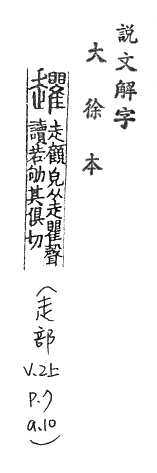 說文解字
大徐本
𧾱
走顧皃从走瞿聲
讀若劬其俱切
(走部
v.2上
p.7
a.10)